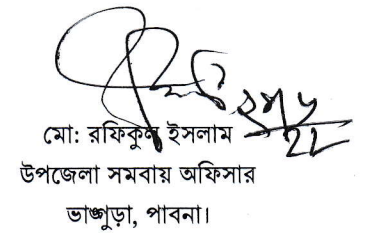 মো: রফিকুল ইসলাম
উপজেলা সমবায় অফিসার
ভাঙ্গুড়া, পাবনা।